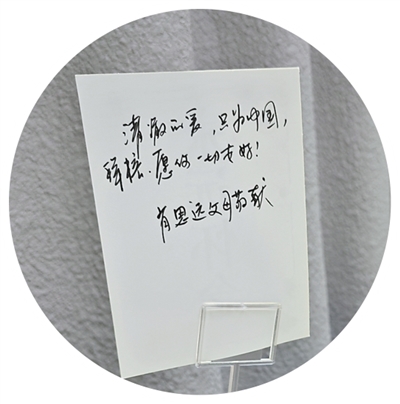 清澈的爱，只为中国，
祥榕，愿你一切安好！
肖思远父母敬献